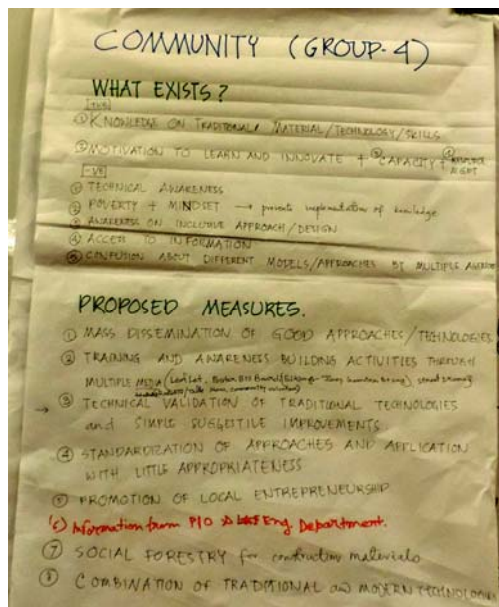 COMMUNITY (GROUP-4)
WHAT EXISTS?
+VE
① KNOWLEDGE ON TRADITIONAL MATERIAL/TECHNOLOGY/SKILLS
② MOTIVATION TO LEARN AND INNOVATE + ③ CAPACITY +
-VE
① TECHNICAL AWARENESS
② POVERTY + MINDSET → prevents implementation of knowledge
③ AWARENESS ON INCLUSIVE APPROACH/DESIGN
④ ACCESS TO INFORMATION
⑤ CONFUSION ABOUT DIFFERENT MODELS/APPROACHES BY MULTIPLE
PROPOSED MEASURES.
① MASS DISSEMINATION OF GOOD APPROACHES/TECHNOLOGIES
② TRAINING AND AWARENESS BUILDING ACTIVITIES THROUGH
MULTIPLE MEDIA (Leaflet, street drama)
→ ③ TECHNICAL VALIDATION OF TRADITIONAL TECHNOLOGIES
and SIMPLE SUGGESTIVE IMPROVEMENTS
④ STANDARDIZATION OF APPROACHES AND APPLICATION
WITH LITTLE APPROPRIATENESS
⑤ PROMOTION OF LOCAL ENTREPRENEURSHIP
⑥ Information from PIO Eng. Department.
⑦ SOCIAL FORESTRY for construction materials
⑧ COMBINATION OF TRADITIONAL and MODERN TECHNOLOGIES